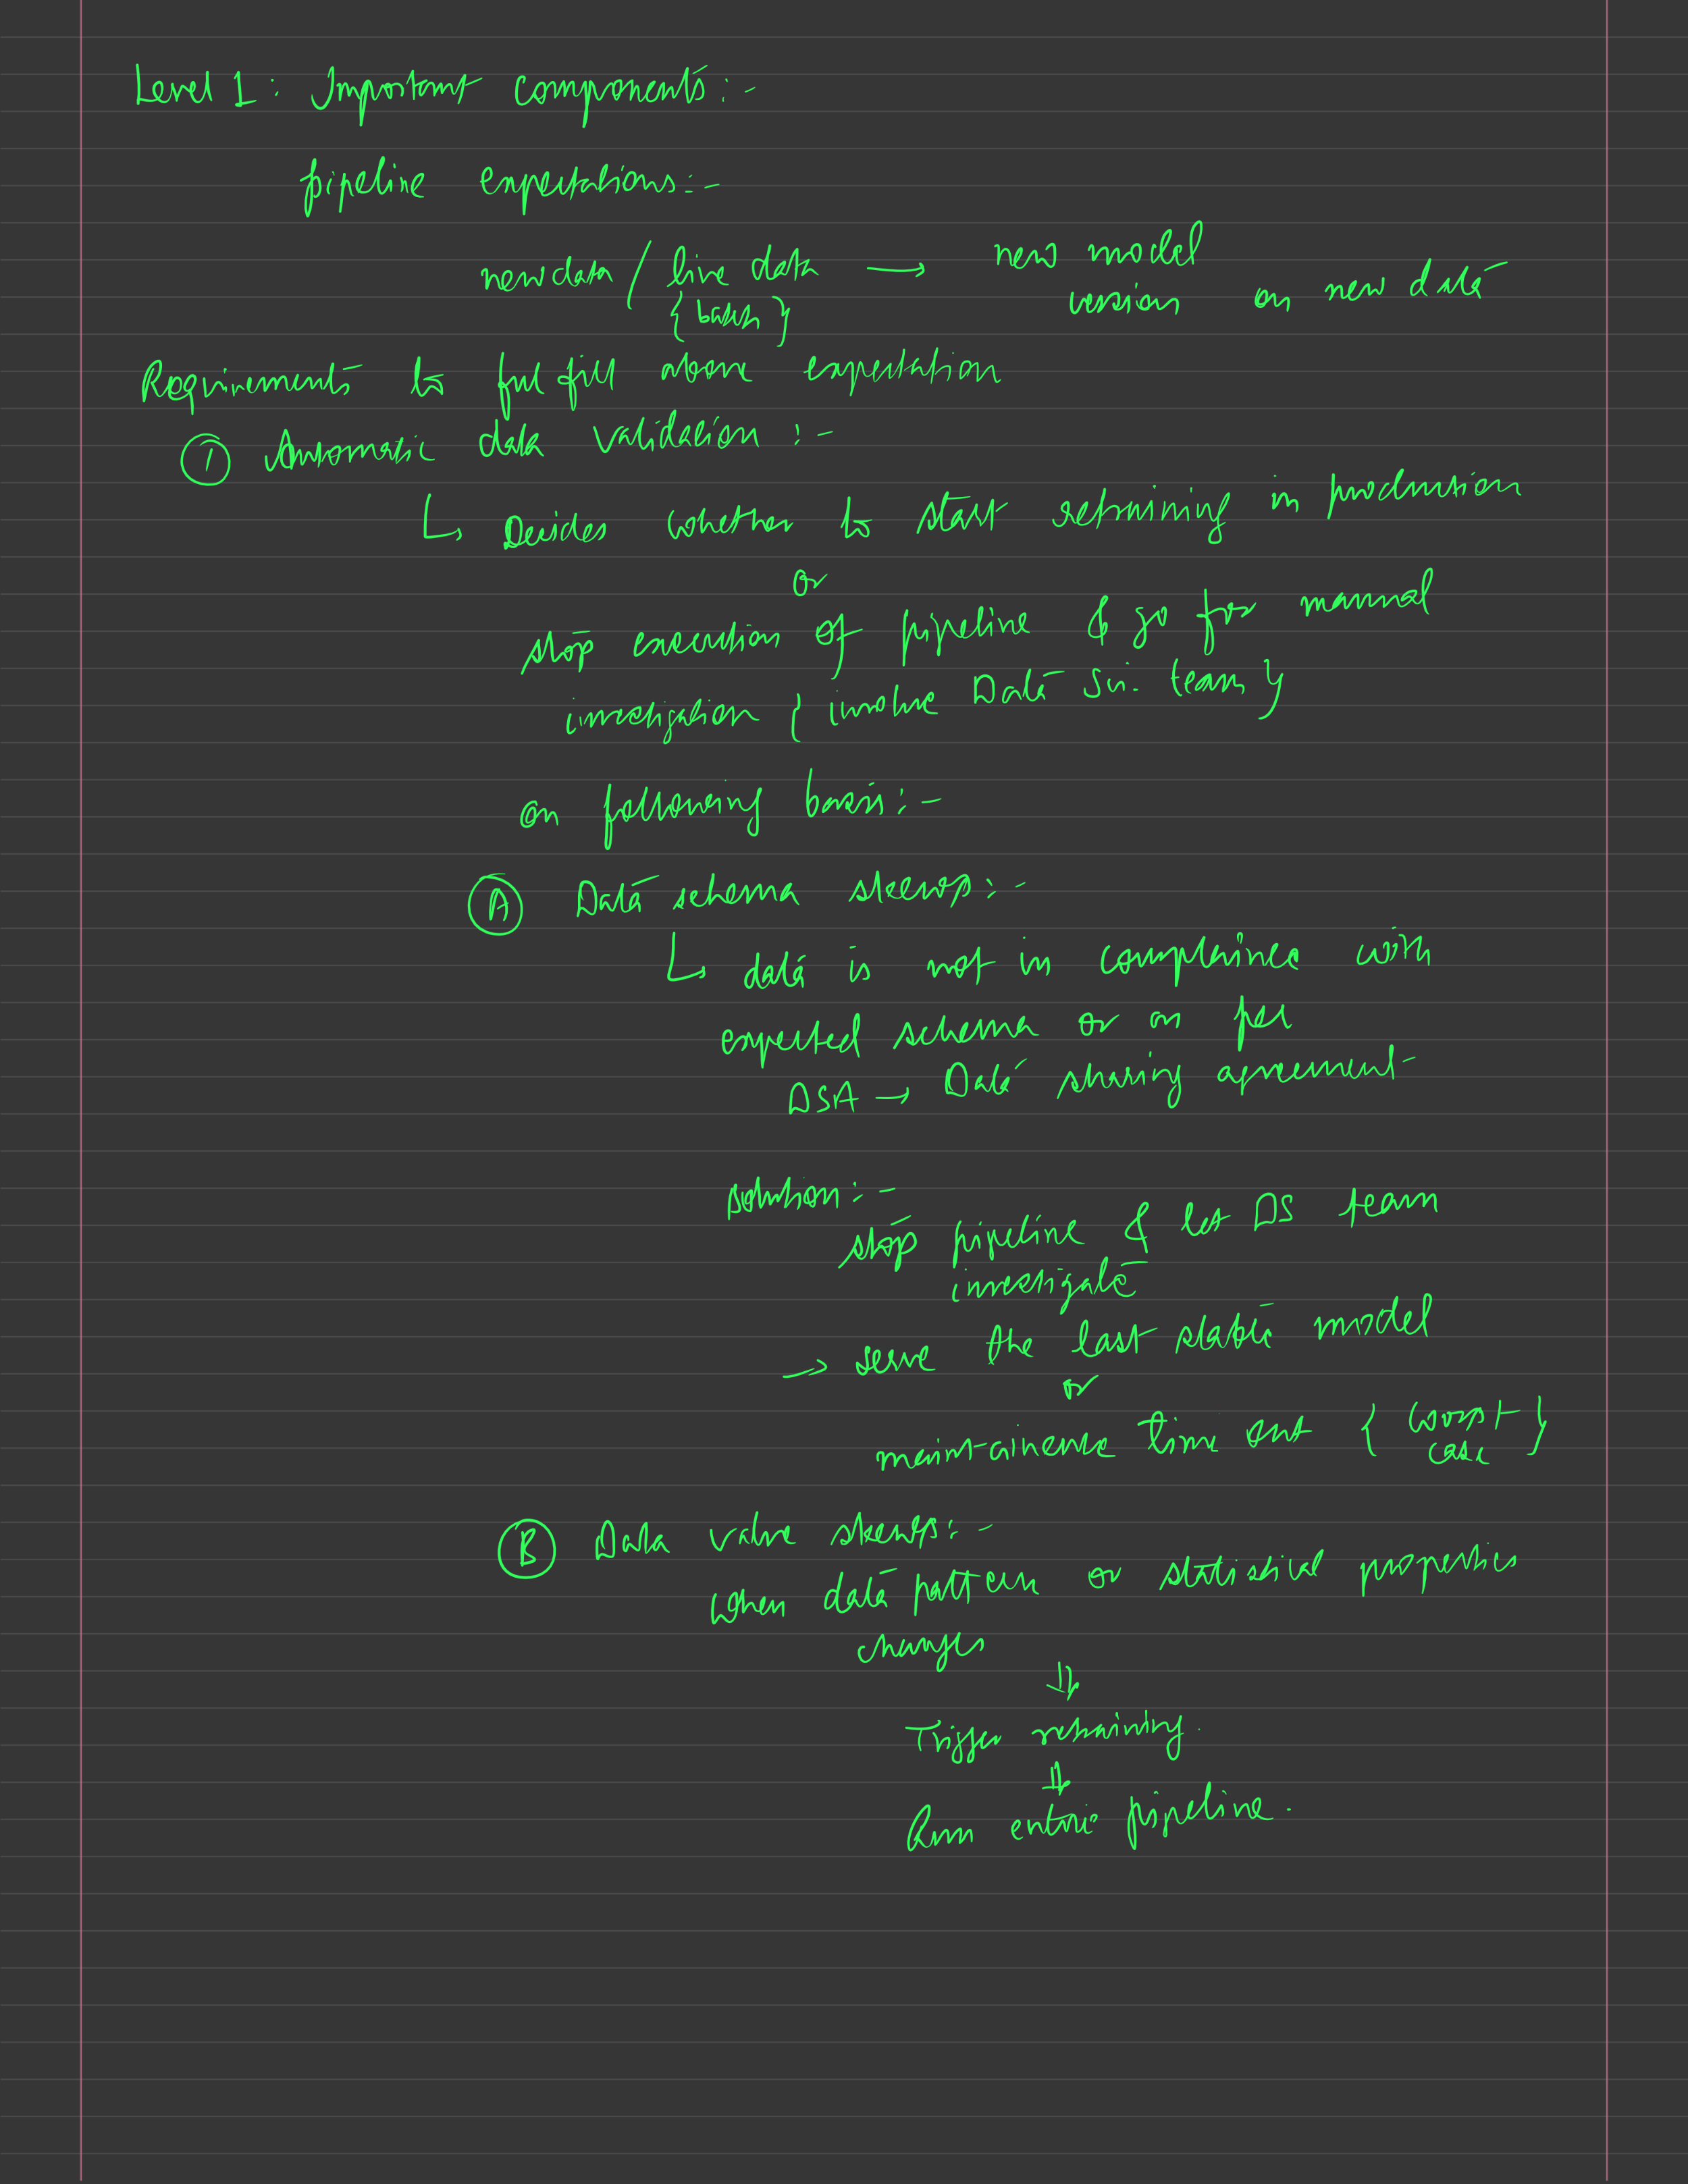 Level 1: Important Components:-
pipeline expectations:-
new data / live data → new model
{batch} version on new data
Requirements to fulfill above expectation
① Automatic data validation :-
↳ Decides whether to start retraining in production
or
stop execution of pipeline & go for manual
investigation { involve Data Sci. team }
on following basis:-
Ⓐ Data schema skews:-
↳ data is not in complaince with
expected schema or as per
DSA → Data sharing agreement
solution:-
stop pipeline & let DS team
investigate
→ serve the last stable model
or
maintainence time out { worst
case }
Ⓑ Data value skews:-
when data pattern or statistical properties
changes
⇓
Trigger retraining.
⇓
Run entire pipeline.